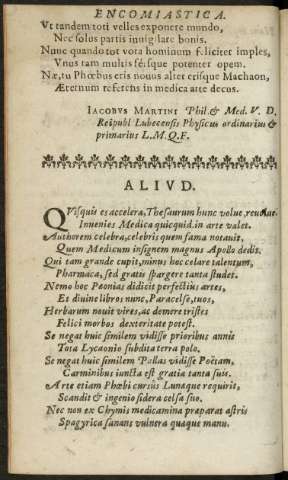 ENCOMIASTICA.
Vt tandem toti velles exponere mundo,
Nec solus partis invigilare bonis.
Nunc quando tot vota hominum feliciter imples,
Vnus tam multis fersque potenter opem.
Næ, tu Phœbus eris novus alter erisque Machaon,
Æternum referens in medica arte decus.
IACOBVS MARTINI Phil. & Med. V. D.
Reipubl Lubecensis Physicus ordinarius &
primarius L.M.Q.F.
ALIVD.
QVisquis es accelera, Thesaurum hunc volue, revolue.
Invenies Medica quicquid in arte valet.
Authorem celebra, celebris quem fama notavit,
Quem Medicum insignem magnus Apollo dedit.
Qui tam grande cupit, minus hoc celare talentum,
Pharmaca, sed gratis spargere tanta studet.
Nemo hoc Pæonias didicit perfectius artes,
Et divine libros nunc, Paracelse, tuos,
Herbarum novit vires, ac demere tristes
Felici morbos dexteritate potest.
Se negat huic similem vidisse prioribus annis
Tota Lycaonio subdita terra polo,
Se negat huic similem Pallas vidisse Poëtam,
Carminibus iuncta est gratia tanta suis.
Arte etiam Phœbi cursus Lunæque requirit,
Scandit & ingenio sidera celsa suo.
Nec non ex Chymis medicamina preparat astris
Spagyrica sanans vulnera quæque manu.